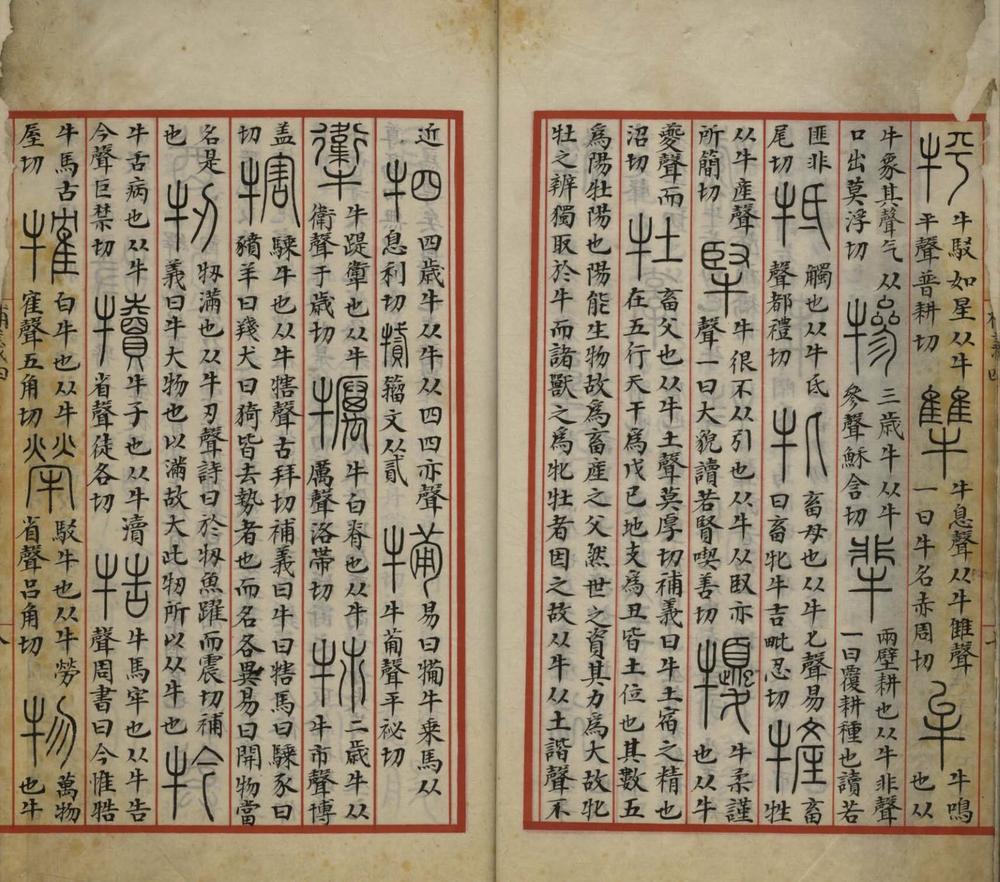 㸬 牛駁如星从牛 犨 牛息聲从牛雔聲 牟 牛鳴
平聲普耕切 一曰牛名赤周切 也从
牛象其聲气从 犙 三歲牛从牛 兩壁耕也从牛非聲
口出莫浮切 參聲穌含切 一曰覆耕種也讀若
匪非 牴 觸也从牛氐 牝 畜母也从牛匕聲易 㹌 畜
尾切 聲都禮切 曰畜牝牛吉毗忍切 牲
从牛產聲 㹂 牛很不从引也从牛从臤亦 㹛 牛柔謹
所簡切 聲一曰大貌讀若賢喫善切 也从牛
夒聲而 牡 畜父也从牛土聲莫厚切補義曰牛土宿之精也
沼切 在五行天干為戊己地支為丑皆土位也其數五
為陽牡陽也陽能生物故為畜産之父然世之資其力為大故牝
牡之辨獨取於牛而諸獸之為牝牡者因之故从牛从土諧聲不
近 牭 四歲牛从牛从四四亦聲 犕 易曰犕牛乗馬从
息利切 籀文从貳 牛葡聲平祕切
牛踶躗也从牛 犡 牛白脊也从牛 二歲牛从
衛聲于歲切 厲聲洛帶切 牛巿聲博
蓋 犗 騬牛也从牛犗聲古拜切補義曰牛曰犗馬曰騬豕曰
切 豶羊曰羠犬曰猗皆去勢者也而名各異易曰開物當
名是 牣 牣滿也从牛刃聲詩曰於牣魚躍而震切補 㸫
也 義曰牛大物也以滿故大此牣所以从牛也
牛舌病也从牛 犢 牛子也从牛瀆 牿 牛馬牢也从牛告
今聲巨禁切 省聲徒各切 聲周書曰今惟牿
牛馬古 㹊 白牛也从牛 犖 駁牛也从牛勞 物 萬物
屋切 寉聲五角切 省聲呂角切 也牛